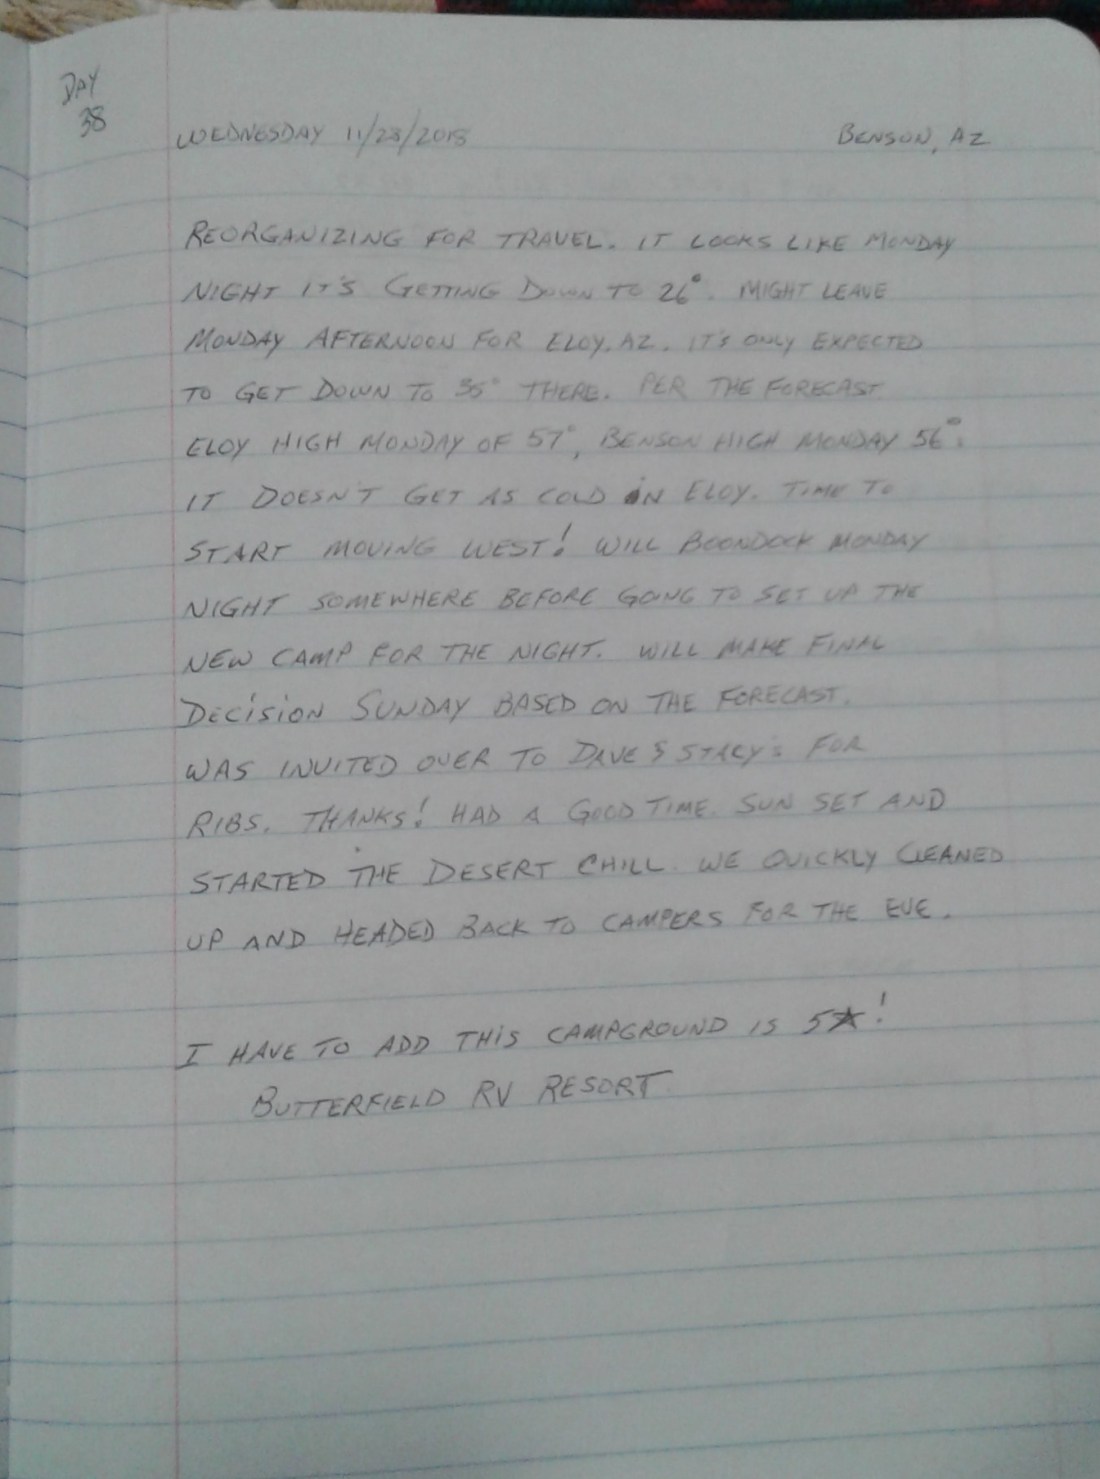 DAY
38
WEDNESDAY 11/28/2018 BENSON, AZ
REORGANIZING FOR TRAVEL. IT LOOKS LIKE MONDAY
NIGHT IT'S GETTING DOWN TO 26°. MIGHT LEAVE
MONDAY AFTERNOON FOR ELOY, AZ. IT'S ONLY EXPECTED
TO GET DOWN TO 35° THERE. PER THE FORECAST
ELOY HIGH MONDAY OF 57°, BENSON HIGH MONDAY 56°.
IT DOESN'T GET AS COLD IN ELOY. TIME TO
START MOVING WEST! WILL BOONDOCK MONDAY
NIGHT SOMEWHERE BEFORE GOING TO SET UP THE
NEW CAMP FOR THE NIGHT. WILL MAKE FINAL
DECISION SUNDAY BASED ON THE FORECAST.
WAS INVITED OVER TO DAVE & STACY'S FOR
RIBS. THANKS! HAD A GOOD TIME. SUN SET AND
STARTED THE DESERT CHILL. WE QUICKLY CLEANED
UP AND HEADED BACK TO CAMPERS FOR THE EVE.
I HAVE TO ADD THIS CAMPGROUND IS 5★!
BUTTERFIELD RV RESORT.